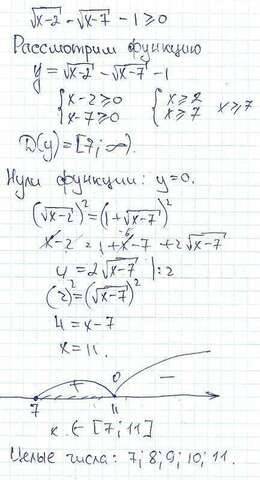 √x-2 - √x-7 - 1 ≥ 0
Рассмотрим функцию
y = √x-2 - √x-7 - 1
{x-2≥0 {x≥2 x≥7
{x-7≥0 {x≥7
D(y) = [7; ∞).
Нули функции: y=0.
(√x-2)² = (1+√x-7)²
x-2 = 1+x-7 + 2√x-7
4 = 2√x-7 |:2
(2)² = (√x-7)²
4 = x-7
x = 11.
+ 0 −
7 11
x ∈ [7; 11]
Целые числа: 7; 8; 9; 10; 11.